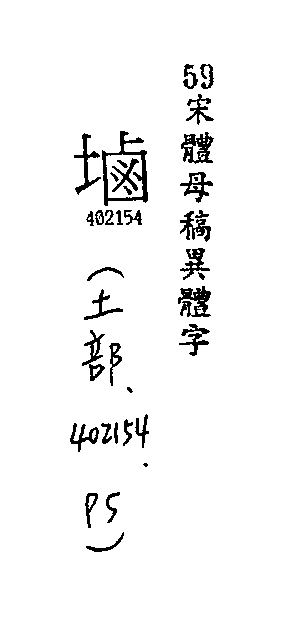 59宋體母稿異體字
塷
402154
(土部、
402154.
P5)